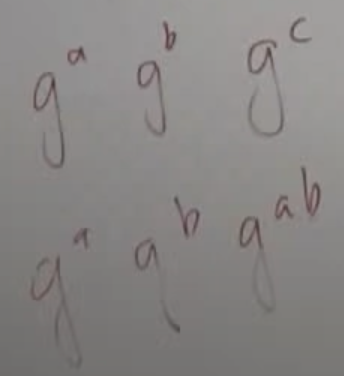 g^a g^b g^c
g^a g^b g^ab